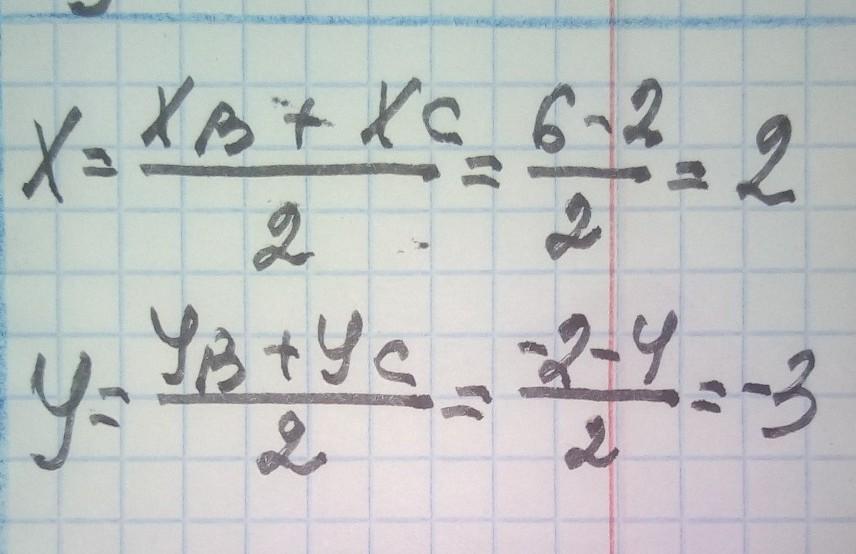 x = (x_B + x_C)/2 = (6-2)/2 = 2
y = (y_B + y_C)/2 = (-2-4)/2 = -3